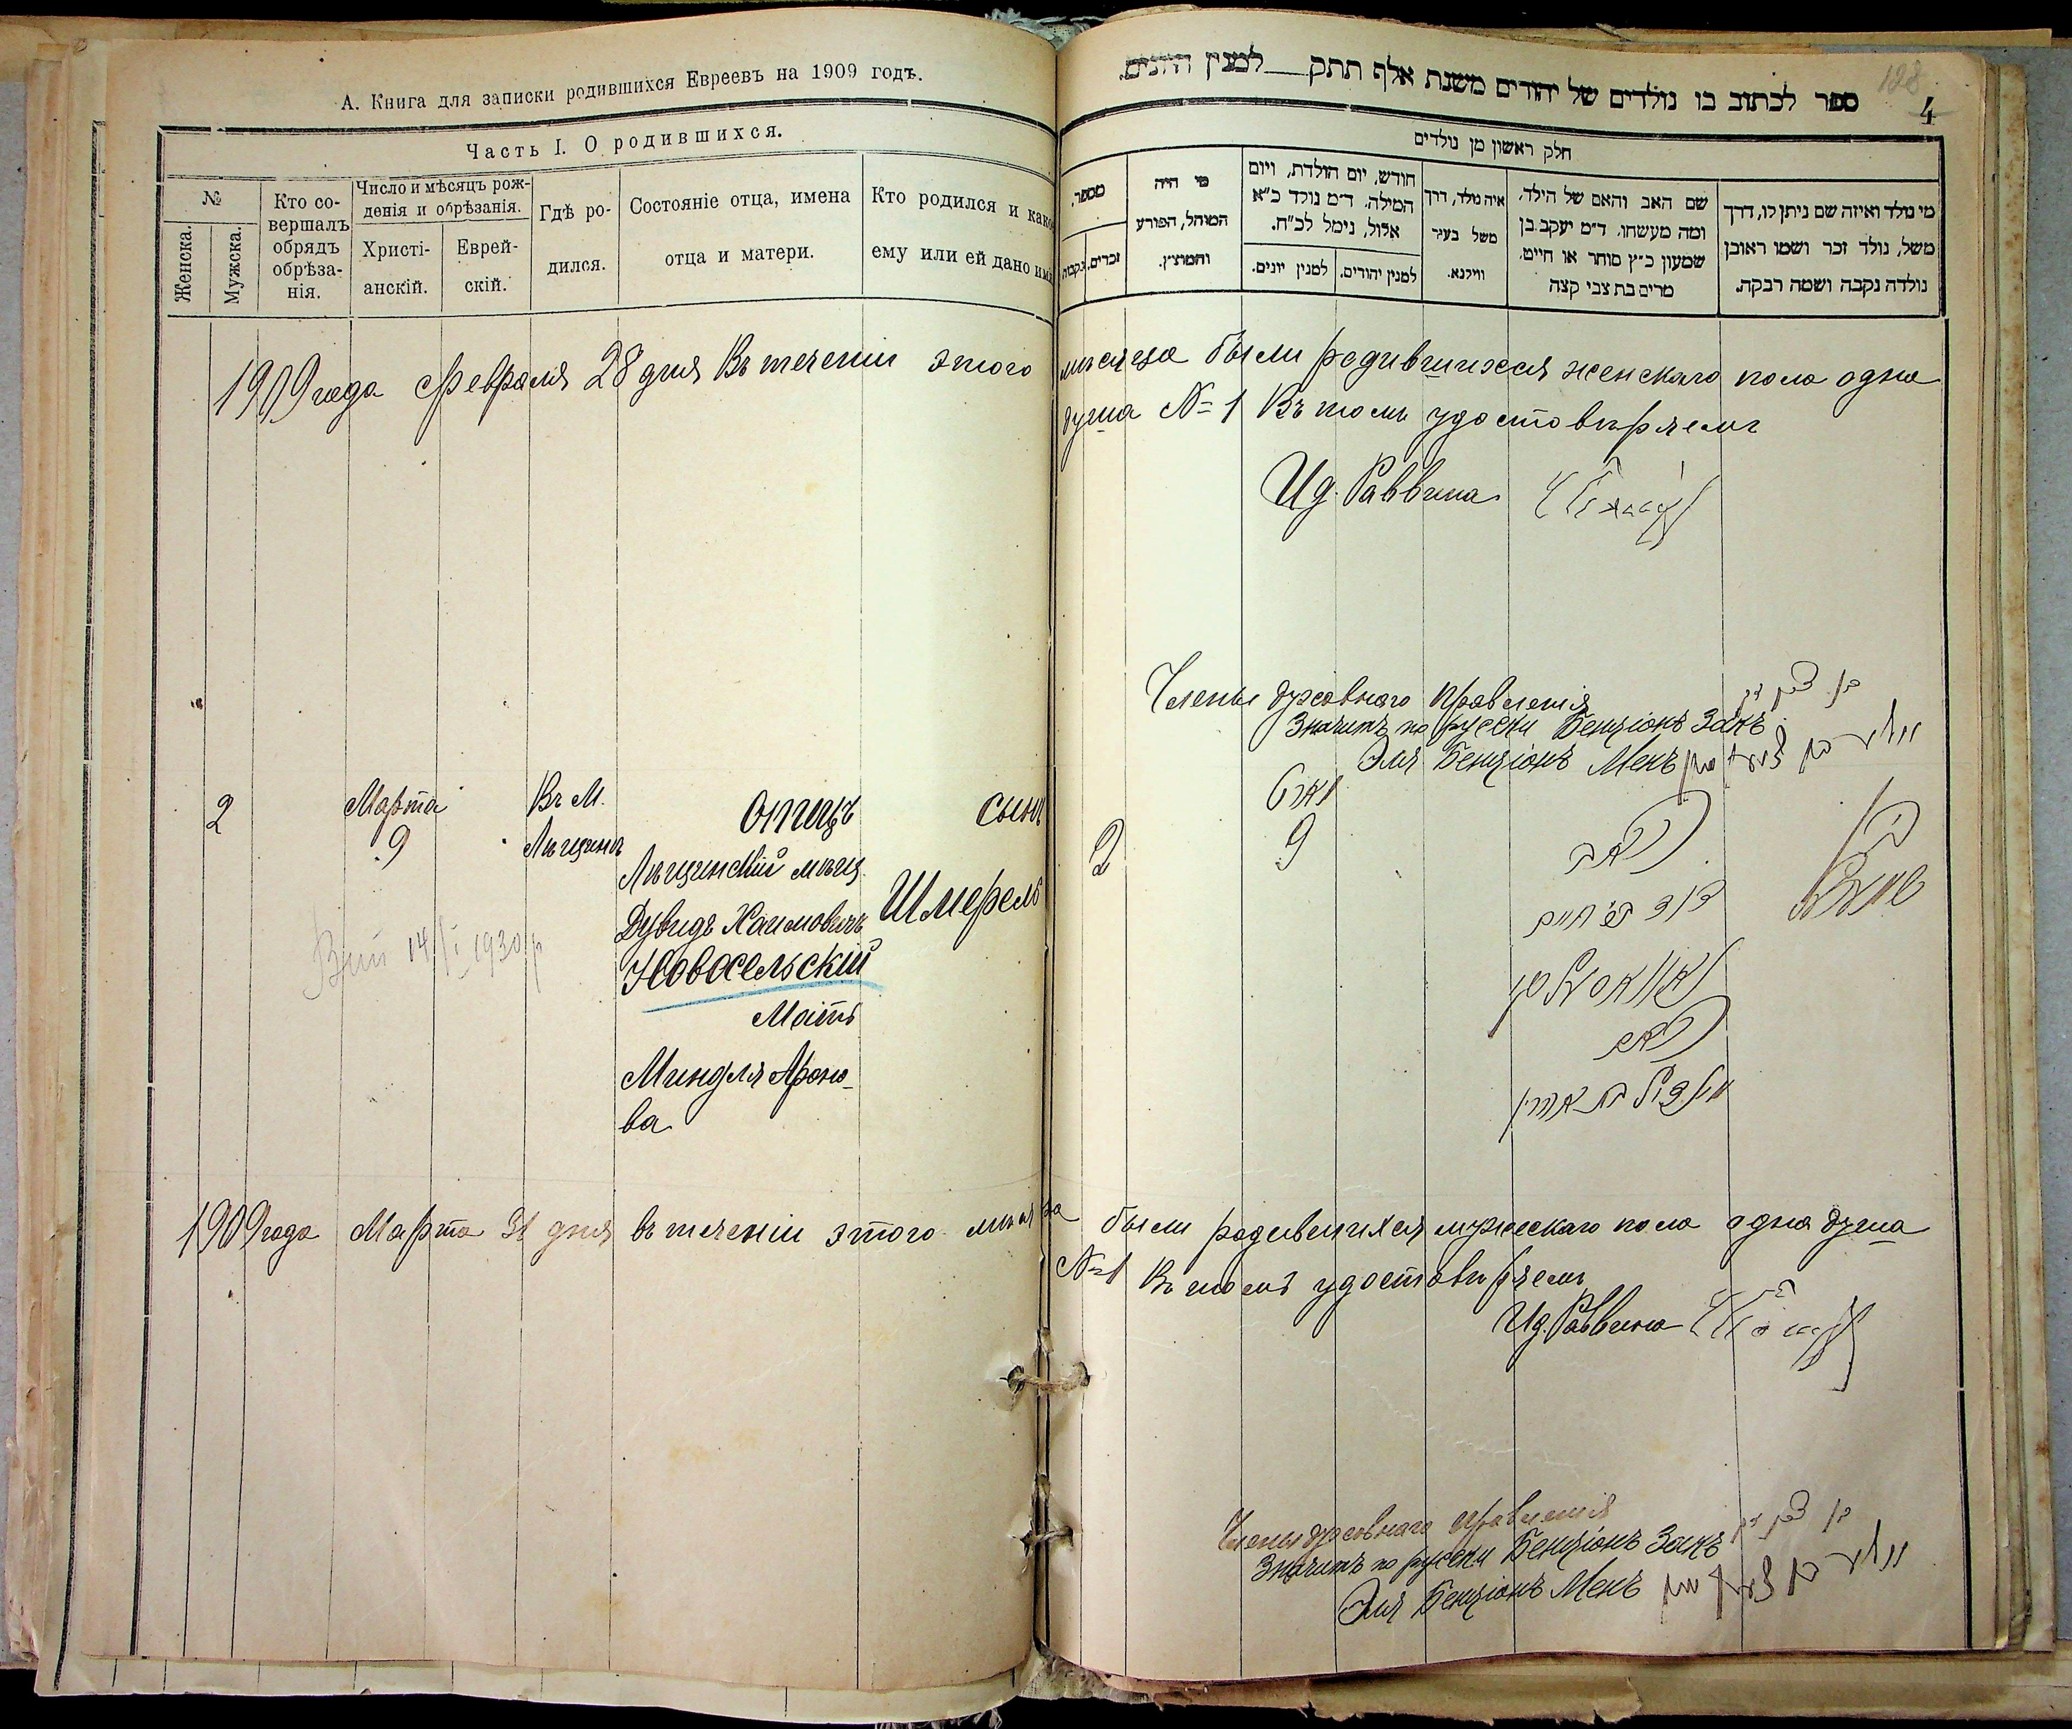 А. Книга для записки родившихся Евреевъ на 1909 годъ.
Часть I. О родившихся.
№
Женска.
Мужска.
Кто со-
вершалъ
обрядъ
обрѣза-
нія.
Число и мѣсяцъ рож-
денія и обрѣзанія.
Христі-
анскій.
Еврей-
скій.
Гдѣ ро-
дился.
Состояніе отца, имена
отца и матери.
Кто родился и како
ему или ей дано имя
128
4
ספר לכתוב בו נולדים של יהודים משנת אלף תתק למנין היונים.
חלק ראשון מן נולדים
מספר.
זכרים.
נקבות
מי היה
המוהל, הפורע
והמוצץ.
חודש, יום הולדת, ויום
המילה. ד״מ נולד כ״א
אלול, נימל לכ״ח.
למנין יונים.
למנין יהודים.
איה נולד, דרך
משל בעיר
ווילנא.
שם האב והאם של הילד,
ומה מעשהו. ד״מ יעקב בן
שמעון כ״ץ סוחר או חייט.
מרים בת צבי קצה
מי נולד ואיזה שם ניתן לו, דרך
משל, נולד זכר ושמו ראובן
נולדה נקבה ושמה רבקה.
1909 года Февраля 28 дня Въ теченіи этого мѣсяца были родившихся женскаго пола одна
душа № 1 Въ томъ удостовѣряемъ
Ид. Раввина
Члены духовнаго правленія
Значитъ по русски Бенціонъ Закъ
Эля Бенціонъ Менъ
2
Марта
9
Въ М.
Лыщинъ
Отецъ
Лыщинскій мѣщ.
Дувидъ Хаимовичъ
Новосельскій
Мать
Миндля Ароно-
ва
сынъ
Шмерель
14/I 1930 р
2
מארט
9
דוד בר חיים
מינדיל בת אהרן
1909 года Марта 31 дня въ теченіи этого мѣсяца были родившихся мужескаго пола одна душа
№ 1 Въ томъ удостовѣряемъ
Ид. Раввина
Члены духовнаго правленія
Значитъ по русски Бенціонъ Закъ
Эля Бенціонъ Менъ